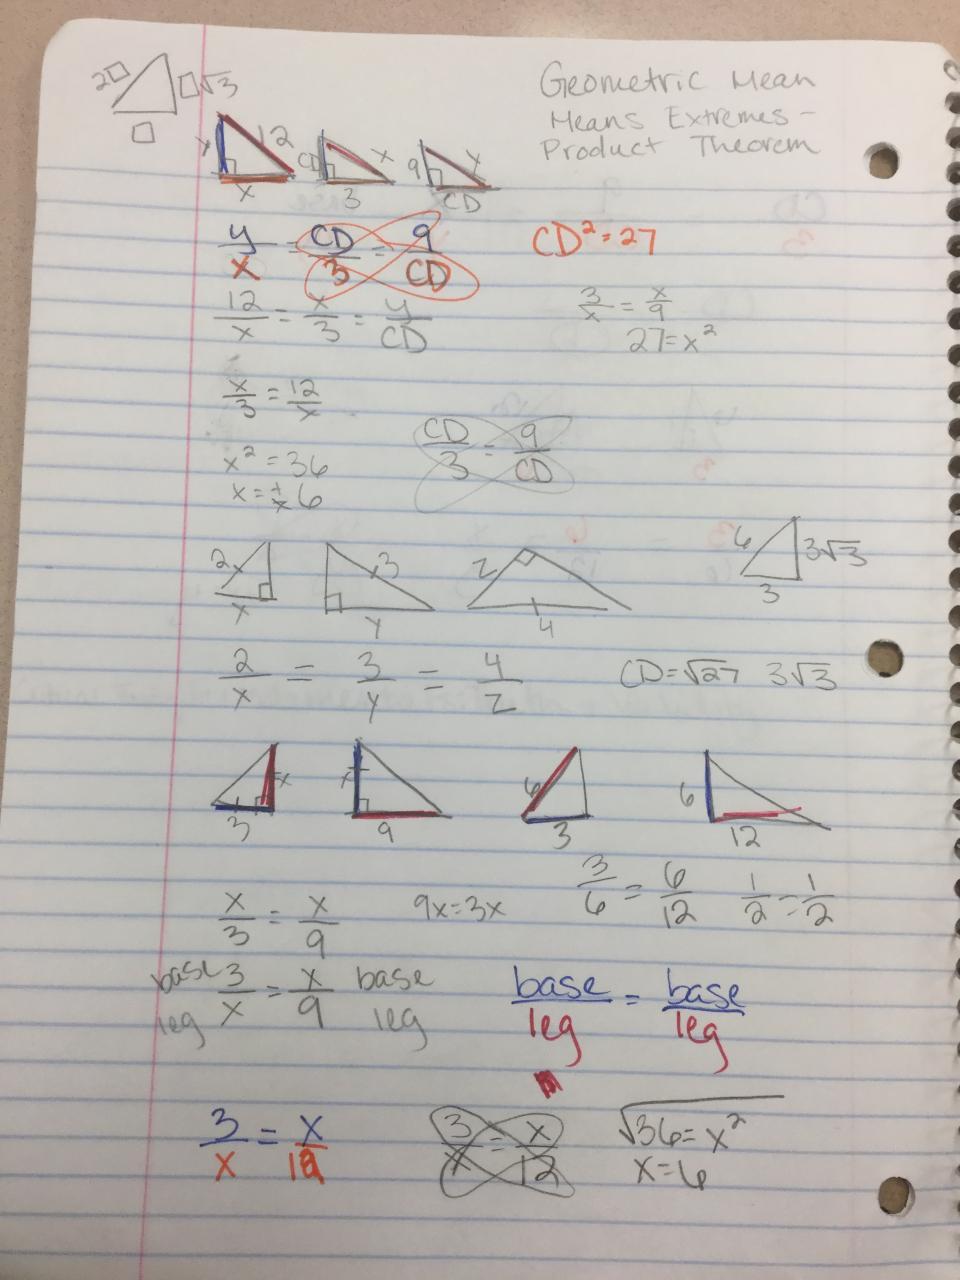 Geometric Mean
Means Extremes-
Product Theorem
2□ □√3
□
y 12 CD x 9 y
x 3 CD
y/x = CD/3 = 9/CD CD² = 27
12/x = x/3 = y/CD 3/x = x/9
27 = x²
x/3 = 12/x
CD/3 = 9/CD
x² = 36
x = ± 6
2 3 z 6 3√3
x y 4 3
2/x = 3/y = 4/z CD = √27 3√3
x x 6 6
3 9 3 12
3/6 = 6/12 1/2 = 1/2
x/3 = x/9 9x = 3x
base 3/x = x/9 base
leg leg
base/leg = base/leg
3/x = x/12 3/x = x/12 √36 = x²
x = 6